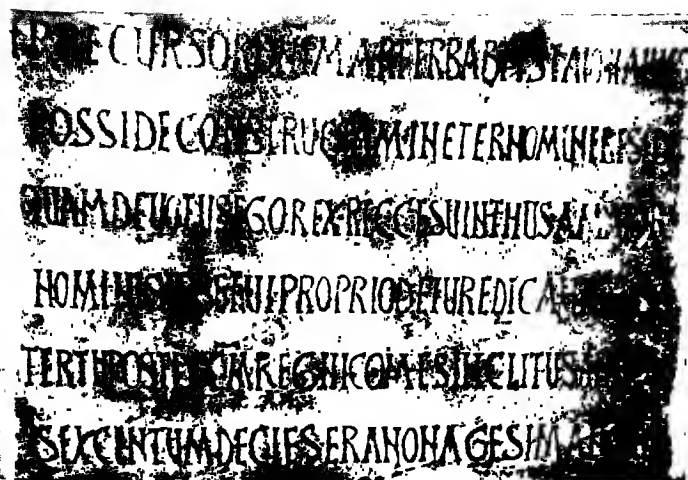 PRECURSORDNIMARTIRBABTISTAIOHANNES
POSSIDECONSTRUCTAMINETERNOMUNERESEDE
QUAMDEVOTUSEGOREXRECCESUINTHUSAM
NOMINISIPSETUIPROPRIODEIUREDICA
TERTIIPOSTDECMREGNICOMESINCLITUS
SEXCENTUMDECIESERANONAGESIMA